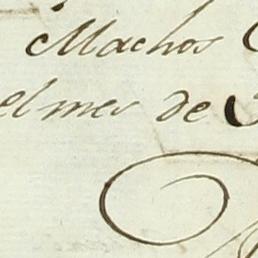 Machos
el mes de